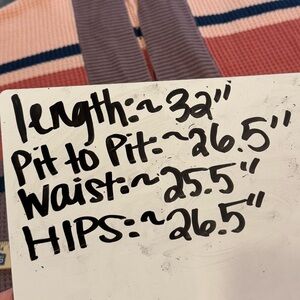 length:~32"
Pit to Pit:~26.5"
Waist:~25.5"
HIPS:~26.5"